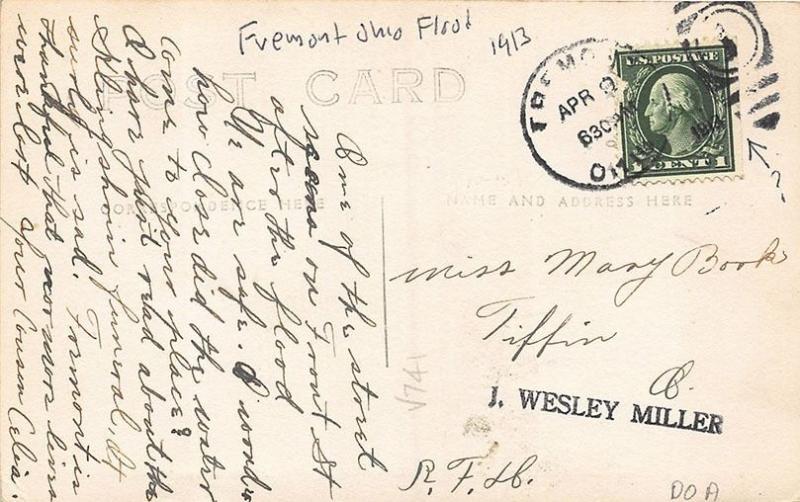 Fremont Ohio Flood 1913
POST CARD
CORRESPONDENCE HERE
NAME AND ADDRESS HERE
FREMONT
APR 9
630PM
OHIO
U.S. POSTAGE
1 CENT 1
One of the street
scenes on Front St
after the flood
We are safe. I wonder
how close did the water
come to your place?
I have just read about the
funeral, It
surely is sad. Fremont is
thankful that no more lives
were lost your Cousin Celia.
Miss Mary Book
Tiffin
O.
J. WESLEY MILLER
R. F. D.
V741
DOA
?